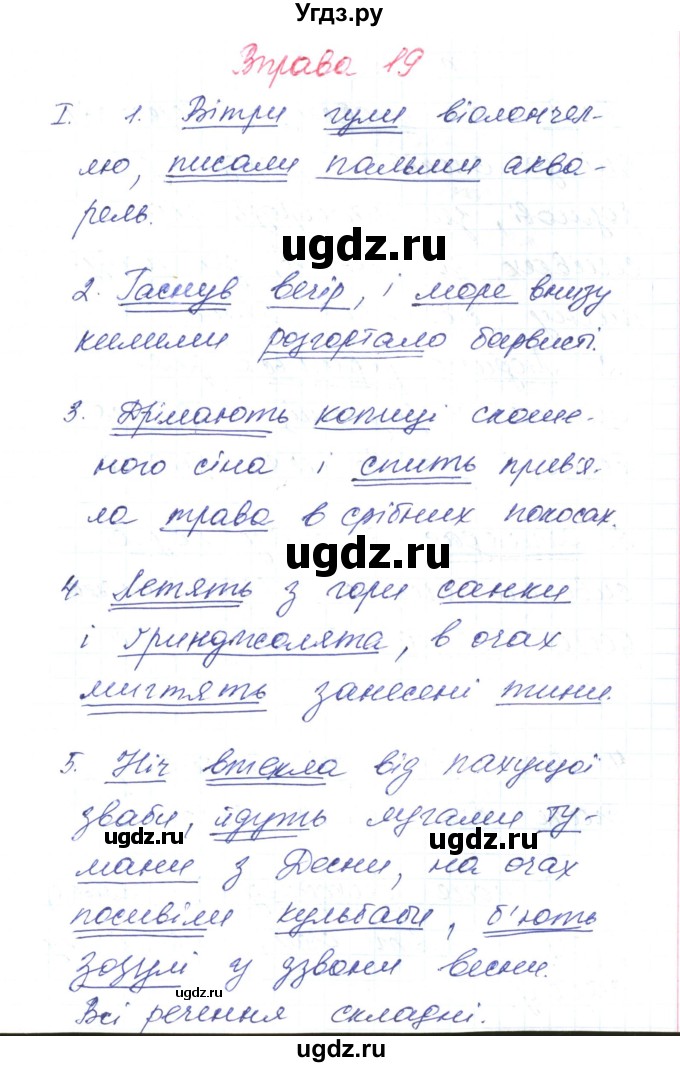 Угдз.ру
Вправа 19
I. 1. Вітри гули віолончел-
лю, писали пальми аква-
рель.
ugdz.ru
2. Гаснув вечір, і море внизу
килими розгортало барвисті.
3. Дрімають копиці скоше-
ного сіна і спить прив'я-
ла трава в срібних покосах.
ugdz.ru
4. Летять з гори санки
і ґринджолята, в очах
миттять занесені тини.
5. Ніч втекла від пахущої
зваби, йдуть лугами ту-
ugdz.ru
ugdz.ru
мани з Десни, на очах
посивіли кульбаби, б'ють
зозулі у дзвони весни.
ugdz.ru
Всі речення складні.
ugdz.ru